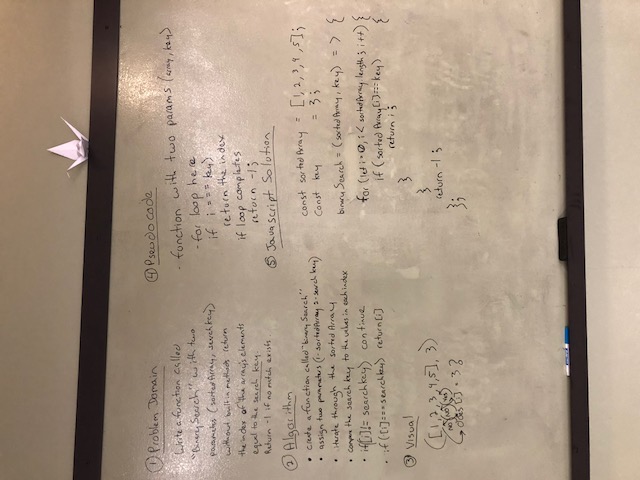 ① Problem Domain
Write a function called
"Binary Search" with two
parameters (sortedArray, searchkey)
without built in methods return
the index of the array's elements
equal to the search key.
Return -1 if no match exists.
② Algorithm
• create a function called "binary Search"
• assign two parameters (1- sortedArray 2- search key)
• iterate through the sorted Array
• compare the search key to the values in each index
• if [i] != searchkey) continue
• if ([i] === searchkey) return [i]
③ Visual
([1, 2, 3, 4, 5], 3)
NO NO YES
does [i] = 3 ?
④ Pseudocode
- function with two params (array, key)
- for loop here
if i === key)
return the index
if loop completes
return -1;
⑤ Javascript Solution
const sortedArray = [1, 2, 3, 4, 5];
const key = 3;
binarySearch = (sortedArray, key) => {
for (let i = 0; i < sortedArray.length; i++) {
if (sortedArray[i] === key) {
return i;
}
}
return -1;
};